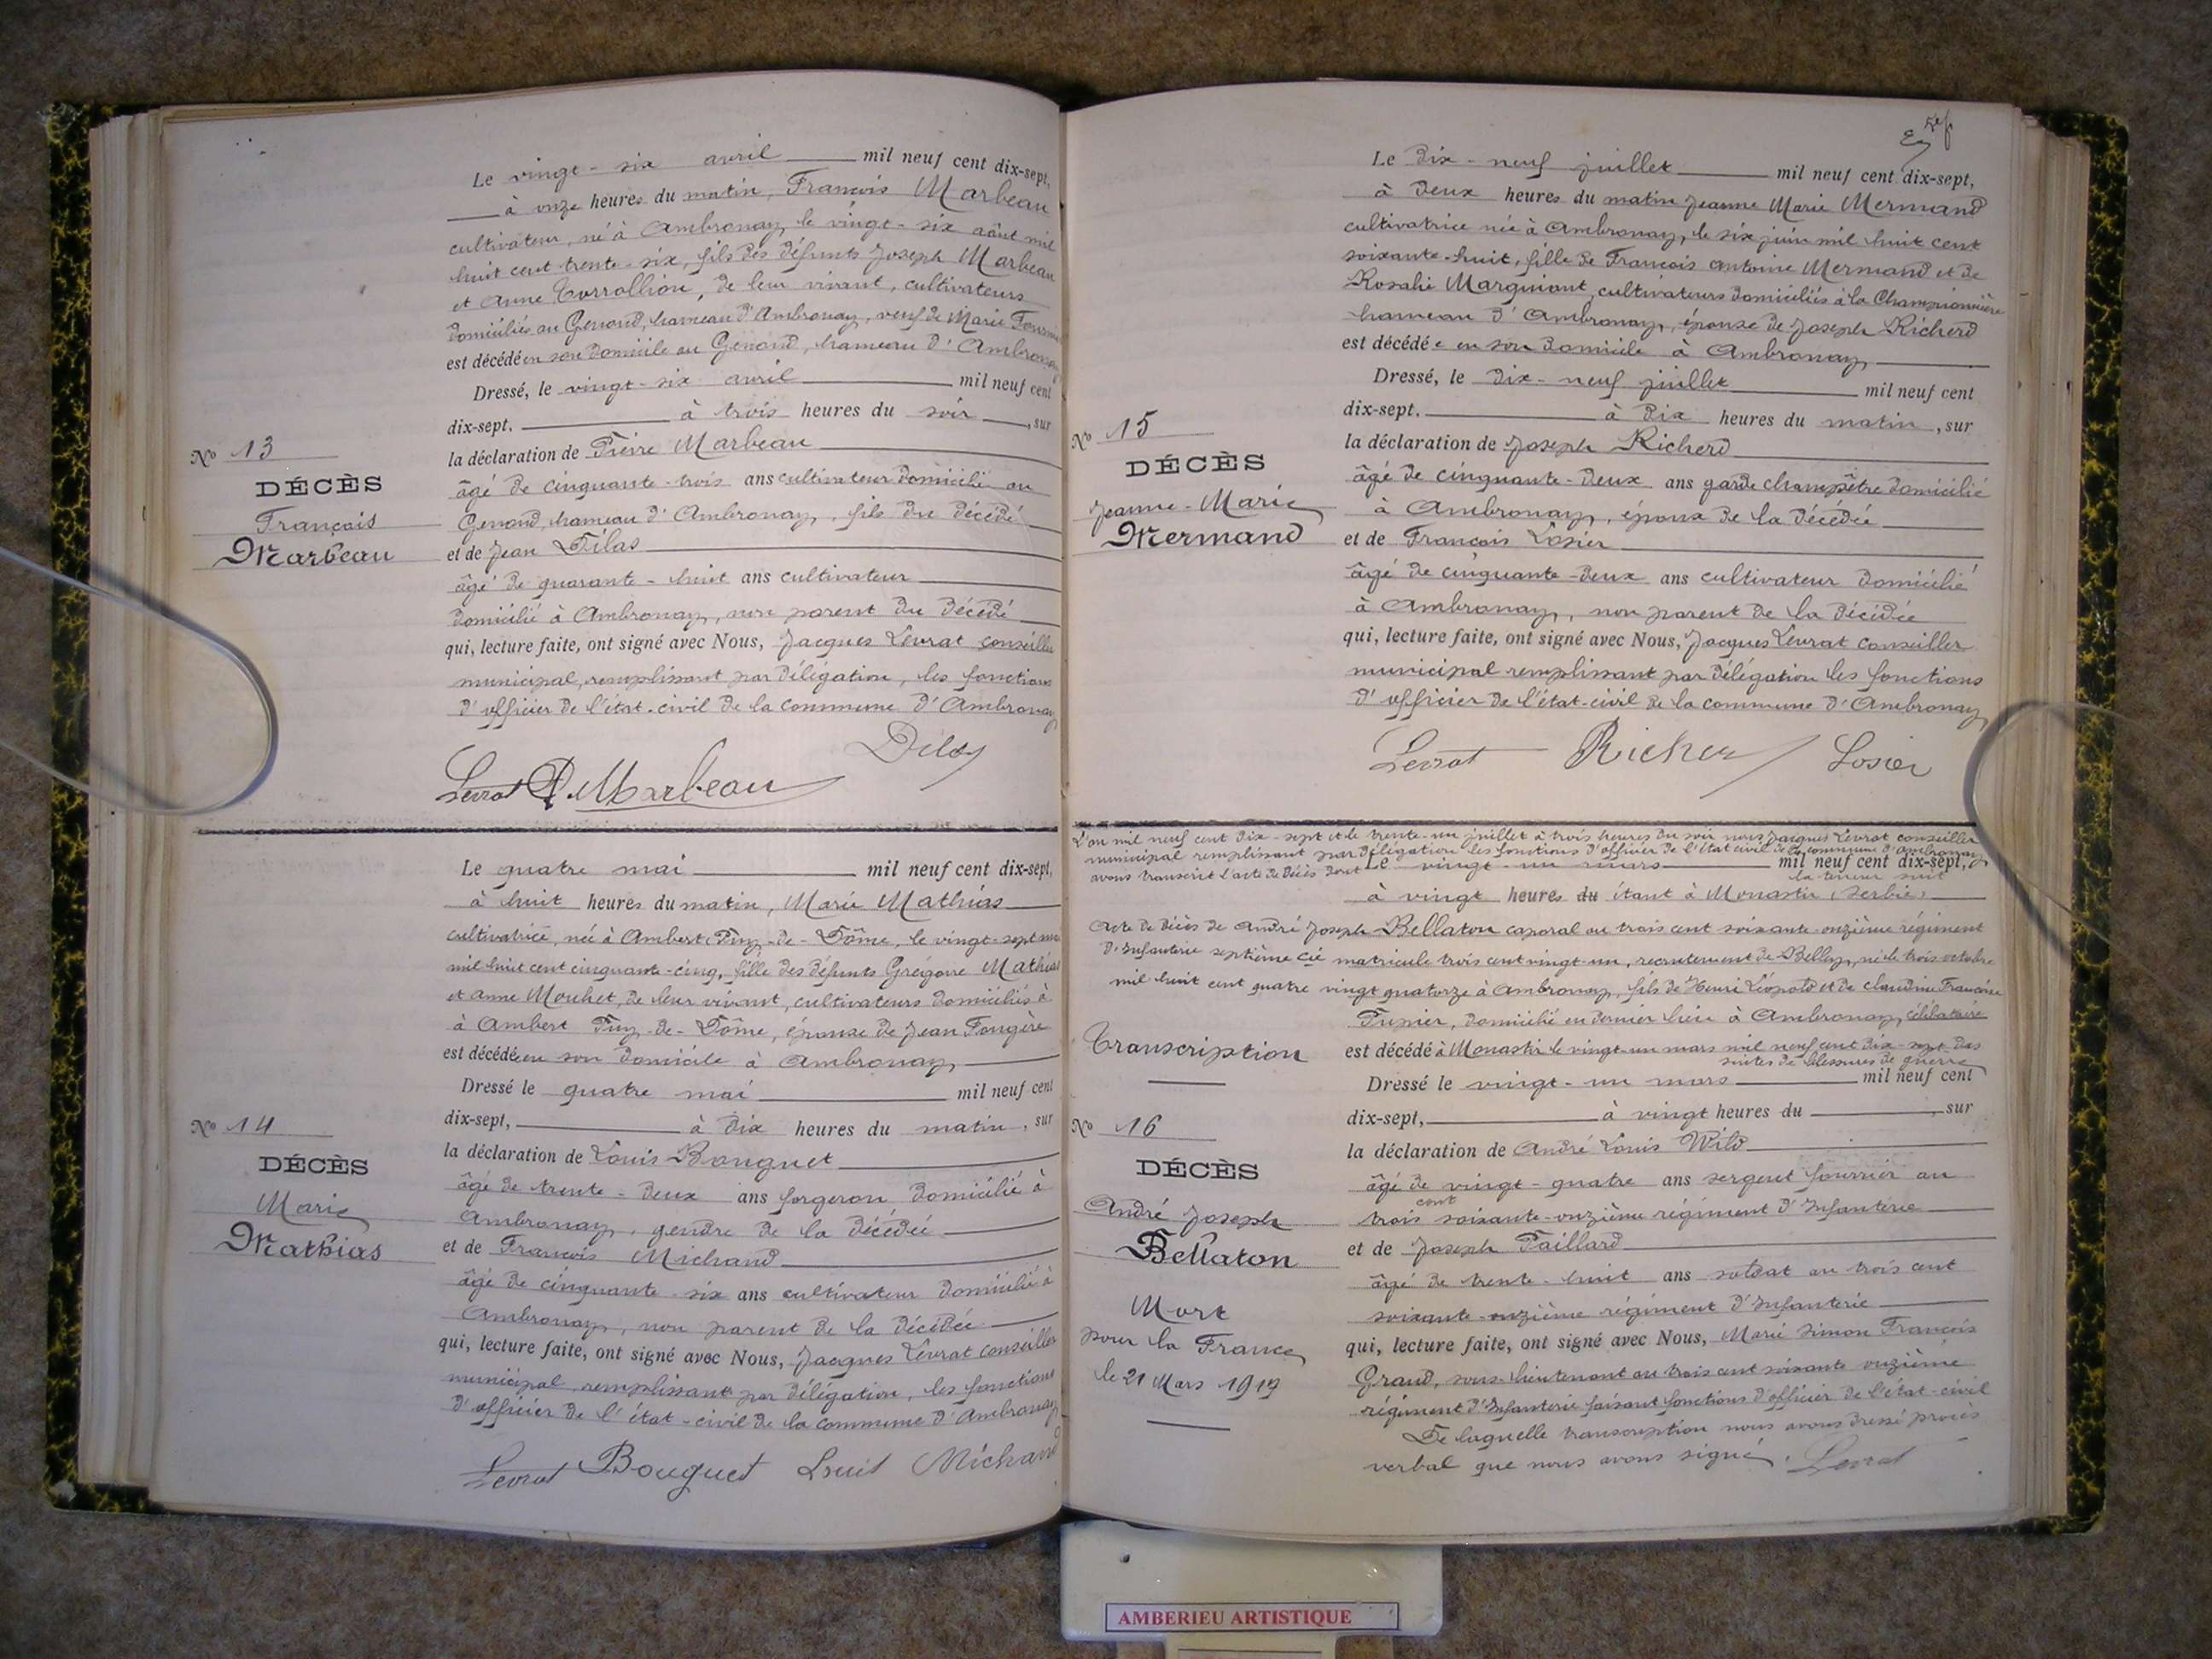 Le vingt-six avril mil neuf cent dix-sept,
à onze heures du matin, François Marbeau
cultivateur, né à Ambronay, le vingt-six août mil
huit cent trente-six, fils des défunts Joseph Marbeau
et Anne, de leur vivant, cultivateurs
domiciliés au Genoud, hameau d'Ambronay, veuf de Marie
est décédé en son domicile au Genoud, hameau d'Ambronay
Dressé, le vingt-six avril mil neuf cent
dix-sept. à trois heures du soir, sur
la déclaration de Pierre Marbeau
âgé de cinquante-trois ans cultivateur domicilié au
Genoud, hameau d'Ambronay, fils du décédé
et de Jean Dilas
âgé de quarante-huit ans cultivateur
domicilié à Ambronay, non parent du décédé
qui, lecture faite, ont signé avec Nous, Jacques Levrat conseiller
municipal, remplissant par délégation, les fonctions
d'officier de l'état-civil de la commune d'Ambronay
Dilas
Levrat P. Marbeau
No 13
DÉCÈS
François
Marbeau
Le quatre mai mil neuf cent dix-sept,
à huit heures du matin, Marie Mathias
cultivatrice, née à Ambert Puy-de-Dôme, le vingt-sept
mil huit cent cinquante-cinq, fille des défunts Grégoire Mathias
et Anne Mouhet, de leur vivant, cultivateurs domiciliés à
à Ambert Puy-de-Dôme, épouse de Jean Fougère
est décédée en son domicile à Ambronay,
Dressé le quatre mai mil neuf cent
dix-sept, à dix heures du matin, sur
la déclaration de Louis Bouguet
âgé de trente-deux ans forgeron domicilié à
Ambronay, gendre de la décédée
et de François Michaud
âgé de cinquante-six ans cultivateur domicilié à
Ambronay, non parent de la décédée
qui, lecture faite, ont signé avec Nous, Jacques Levrat conseiller
municipal remplissant par délégation, les fonctions
d'officier de l'état-civil de la commune d'Ambronay
Levrat Bouguet Louis Michaud
No 14
DÉCÈS
Marie
Mathias
Le dix-neuf juillet mil neuf cent dix-sept,
à deux heures du matin Jeanne Marie Mermand
cultivatrice née à Ambronay, le six juin mil huit cent
soixante-huit, fille de François Antoine Mermand et de
Rosalie, cultivateurs domiciliés à la Championnière
hameau d'Ambronay, épouse de Joseph Richerd
est décédée en son domicile à Ambronay
Dressé, le dix-neuf juillet mil neuf cent
dix-sept. à dix heures du matin, sur
la déclaration de Joseph Richerd
âgé de cinquante-deux ans garde champêtre domicilié
à Ambronay, époux de la décédée
et de François Losier
âgé de cinquante-deux ans cultivateur domicilié
à Ambronay, non parent de la décédée
qui, lecture faite, ont signé avec Nous, Jacques Levrat conseiller
municipal remplissant par délégation les fonctions
d'officier de l'état-civil de la commune d'Ambronay
Levrat Richer Losier
No 15
DÉCÈS
Jeanne-Marie
Mermand
L'an mil neuf cent dix-sept et le trente-un juillet à trois heures du soir nous Jacques Levrat conseiller
municipal remplissant par délégation les fonctions d'officier de l'état civil de la commune d'Ambronay
avons transcrit l'acte de décès dont la teneur suit
Le vingt-un mars mil neuf cent dix-sept,
à vingt heures du étant à Monastir (Serbie)
Acte de décès de André Joseph Bellaton caporal au trois cent soixante-onzième régiment
d'Infanterie septième Cie matricule trois cent vingt-un, recrutement de Belley, né le trois octobre
mil huit cent quatre vingt quatorze à Ambronay, fils de Henri Léopold et de Claudine Françoise
Tupnier, domicilié en dernier lieu à Ambronay, célibataire
est décédé à Monastir le vingt-un mars mil neuf cent dix-sept des
suites de blessures de guerre
Dressé le vingt-un mars mil neuf cent
dix-sept, à vingt heures du, sur
la déclaration de André Louis Wild
âgé de vingt-quatre ans sergent fourrier au
trois cent soixante-onzième régiment d'Infanterie
et de Joseph Taillard
âgé de trente-huit ans soldat au trois cent
soixante-onzième régiment d'Infanterie
qui, lecture faite, ont signé avec Nous, Marie Simon François
Grand, sous-lieutenant au trois cent soixante onzième
régiment d'Infanterie faisant fonctions d'officier de l'état-civil
De laquelle transcription nous avons dressé procès
verbal que nous avons signé. Levrat
Transcription
No 16
DÉCÈS
André Joseph
Bellaton
Mort
pour la France
le 21 Mars 1917
AMBERIEU ARTISTIQUE